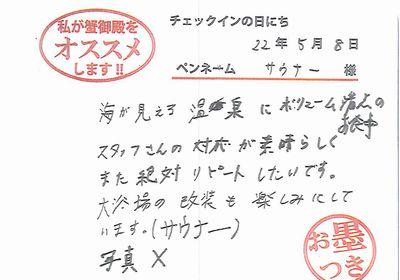 私が蟹御殿を
オススメ
します!!
チェックインの日にち
22年5月8日
ペンネーム サウナー 様
海が見える温泉にボリューム満点の
お食事
スタッフさんの対応が素晴らしく
また絶対リピートしたいです。
大浴場の改装も楽しみにして
います。(サウナー)
写真 X
お墨
つき